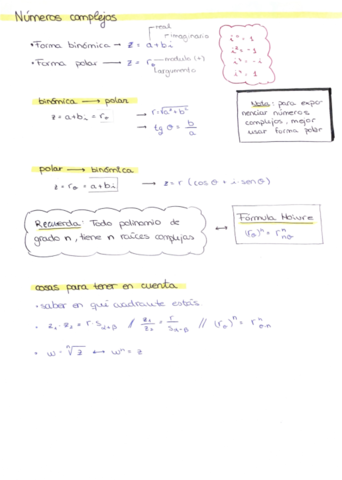 Números complejos
real
imaginario
• Forma binómica → z = a + bi
• Forma polar → z = r_θ
modulo (+)
argumento
binómica → polar
z = a+bi = r_θ
→ r = √a²+b²
→ tg θ = b/a
Nota: para expo-
nenciar números
complejos, mejor
usar forma polar
polar → binómica
z = r_θ = a+bi → z = r (cos θ + i·sen θ)
Recuerda: Todo polinomio de
grado n, tiene n raíces complejas
↔
Fórmula Moivre
(r_θ)ⁿ = rⁿ_nθ
cosas para tener en cuenta
• saber en qué cuadrante estás
• z₁·z₂ = r·s_α+β // z₁/z₂ = r/s_α-β // (r_θ)ⁿ = rⁿ_θ·n
• w = ⁿ√z ↔ wⁿ = z